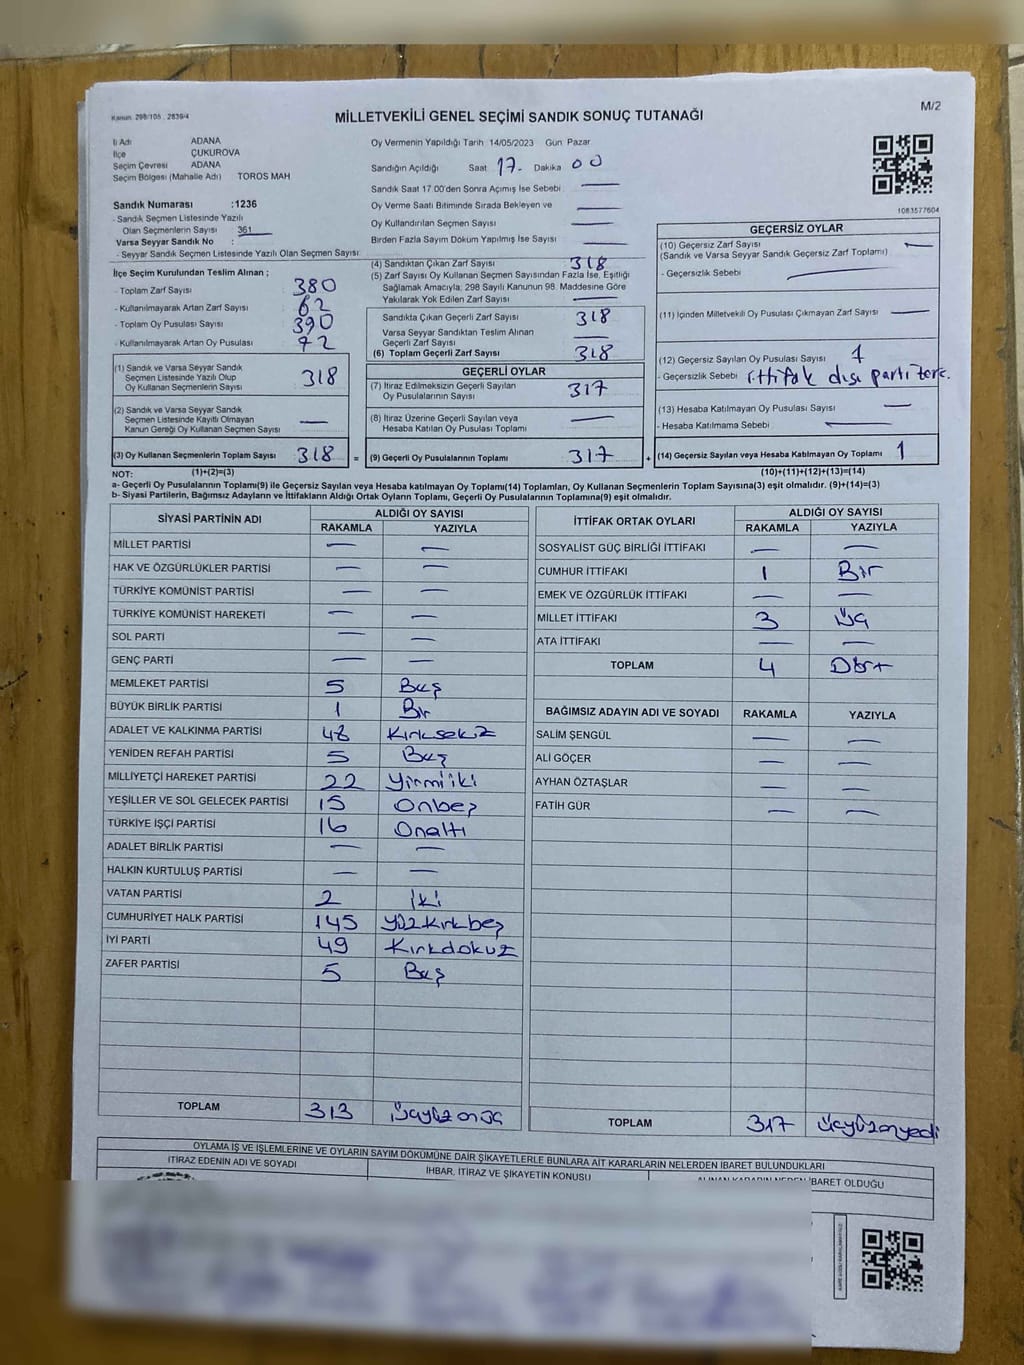 Kanun. 298/105 , 2839/4
MİLLETVEKİLİ GENEL SEÇİMİ SANDIK SONUÇ TUTANAĞI
M/2
İl Adı ADANA
İlçe ÇUKUROVA
Seçim Çevresi ADANA
Seçim Bölgesi (Mahalle Adı) TOROS MAH
Sandık Numarası :1236
- Sandık Seçmen Listesinde Yazılı
Olan Seçmenlerin Sayısı 361
Varsa Seyyar Sandık No :
- Seyyar Sandık Seçmen Listesinde Yazılı Olan Seçmen Sayısı
İlçe Seçim Kurulundan Teslim Alınan ;
- Toplam Zarf Sayısı 380
- Kullanılmayarak Artan Zarf Sayısı 62
- Toplam Oy Pusulası Sayısı 390
- Kullanılmayarak Artan Oy Pusulası 72
(1) Sandık ve Varsa Seyyar Sandık
Seçmen Listesinde Yazılı Olup
Oy Kullanan Seçmenlerin Sayısı 318
(2) Sandık ve Varsa Seyyar Sandık
Seçmen Listesinde Kayıtlı Olmayan
Kanun Gereği Oy Kullanan Seçmen Sayısı —
(3) Oy Kullanan Seçmenlerin Toplam Sayısı 318 =
Oy Vermenin Yapıldığı Tarih 14/05/2023 Gün Pazar
Sandığın Açıldığı Saat 17- Dakika 00
Sandık Saat 17.00'den Sonra Açımış İse Sebebi —
Oy Verme Saati Bitiminde Sırada Bekleyen ve —
Oy Kullandırılan Seçmen Sayısı —
Birden Fazla Sayım Döküm Yapılmış İse Sayısı —
(4) Sandıktan Çıkan Zarf Sayısı 318
(5) Zarf Sayısı Oy Kullanan Seçmen Sayısından Fazla İse, Eşitliği
Sağlamak Amacıyla, 298 Sayılı Kanunun 98. Maddesine Göre
Yakılarak Yok Edilen Zarf Sayısı —
Sandıkta Çıkan Geçerli Zarf Sayısı 318
Varsa Seyyar Sandıktan Teslim Alınan
Geçerli Zarf Sayısı —
(6) Toplam Geçerli Zarf Sayısı 318
GEÇERLİ OYLAR
(7) İtiraz Edilmeksizin Geçerli Sayılan
Oy Pusulalarının Sayısı 317
(8) İtiraz Üzerine Geçerli Sayılan veya
Hesaba Katılan Oy Pusulası Toplamı —
(9) Geçerli Oy Pusulalarının Toplamı 317 +
1083577604
GEÇERSİZ OYLAR
(10) Geçersiz Zarf Sayısı —
(Sandık ve Varsa Seyyar Sandık Geçersiz Zarf Toplamı)
- Geçersizlik Sebebi —
(11) İçinden Milletvekili Oy Pusulası Çıkmayan Zarf Sayısı —
(12) Geçersiz Sayılan Oy Pusulası Sayısı 1
- Geçersizlik Sebebi ittifak dışı parti terc.
(13) Hesaba Katılmayan Oy Pusulası Sayısı —
- Hesaba Katılmama Sebebi —
(14) Geçersiz Sayılan veya Hesaba Katılmayan Oy Toplamı 1
NOT: (1)+(2)=(3) (10)+(11)+(12)+(13)=(14)
a- Geçerli Oy Pusulasının Toplamı(9) ile Geçersiz Sayılan veya Hesaba katılmayan Oy Toplamı(14) Toplamları, Oy Kullanan Seçmenlerin Toplam Sayısına(3) eşit olmalıdır. (9)+(14)=(3)
b- Siyasi Partilerin, Bağımsız Adayların ve İttifakların Aldığı Ortak Oyların Toplamı, Geçerli Oy Pusulalarının Toplamına(9) eşit olmalıdır.
SİYASİ PARTİNİN ADI ALDIĞI OY SAYISI
RAKAMLA YAZIYLA
MİLLET PARTİSİ — —
HAK VE ÖZGÜRLÜKLER PARTİSİ — —
TÜRKİYE KOMÜNİST PARTİSİ — —
TÜRKİYE KOMÜNİST HAREKETİ — —
SOL PARTİ — —
GENÇ PARTİ — —
MEMLEKET PARTİSİ 5 Beş
BÜYÜK BİRLİK PARTİSİ 1 Bir
ADALET VE KALKINMA PARTİSİ 48 Kırksekiz
YENİDEN REFAH PARTİSİ 5 Beş
MİLLİYETÇİ HAREKET PARTİSİ 22 Yirmiiki
YEŞİLLER VE SOL GELECEK PARTİSİ 15 Onbeş
TÜRKİYE İŞÇİ PARTİSİ 16 Onaltı
ADALET BİRLİK PARTİSİ — —
HALKIN KURTULUŞ PARTİSİ — —
VATAN PARTİSİ 2 İki
CUMHURİYET HALK PARTİSİ 145 Yüzkırkbeş
İYİ PARTİ 49 Kırkdokuz
ZAFER PARTİSİ 5 Beş
TOPLAM 313 Üçyüzonüç
İTTİFAK ORTAK OYLARI ALDIĞI OY SAYISI
RAKAMLA YAZIYLA
SOSYALİST GÜÇ BİRLİĞİ İTTİFAKI — —
CUMHUR İTTİFAKI 1 Bir
EMEK VE ÖZGÜRLÜK İTTİFAKI — —
MİLLET İTTİFAKI 3 Üç
ATA İTTİFAKI — —
TOPLAM 4 Dört
BAĞIMSIZ ADAYIN ADI VE SOYADI RAKAMLA YAZIYLA
SALİM ŞENGÜL — —
ALİ GÖÇER — —
AYHAN ÖZTAŞLAR — —
FATİH GÜR — —
TOPLAM 317 Üçyüzonyedi
OYLAMA İŞ VE İŞLEMLERİNE VE OYLARIN SAYIM DÖKÜMÜNE DAİR ŞİKAYETLERLE BUNLARA AİT KARARLARIN NELERDEN İBARET BULUNDUKLARI
İTİRAZ EDENİN ADI VE SOYADI
İHBAR, İTİRAZ VE ŞİKAYETİN KONUSU
İBARET OLDUĞU